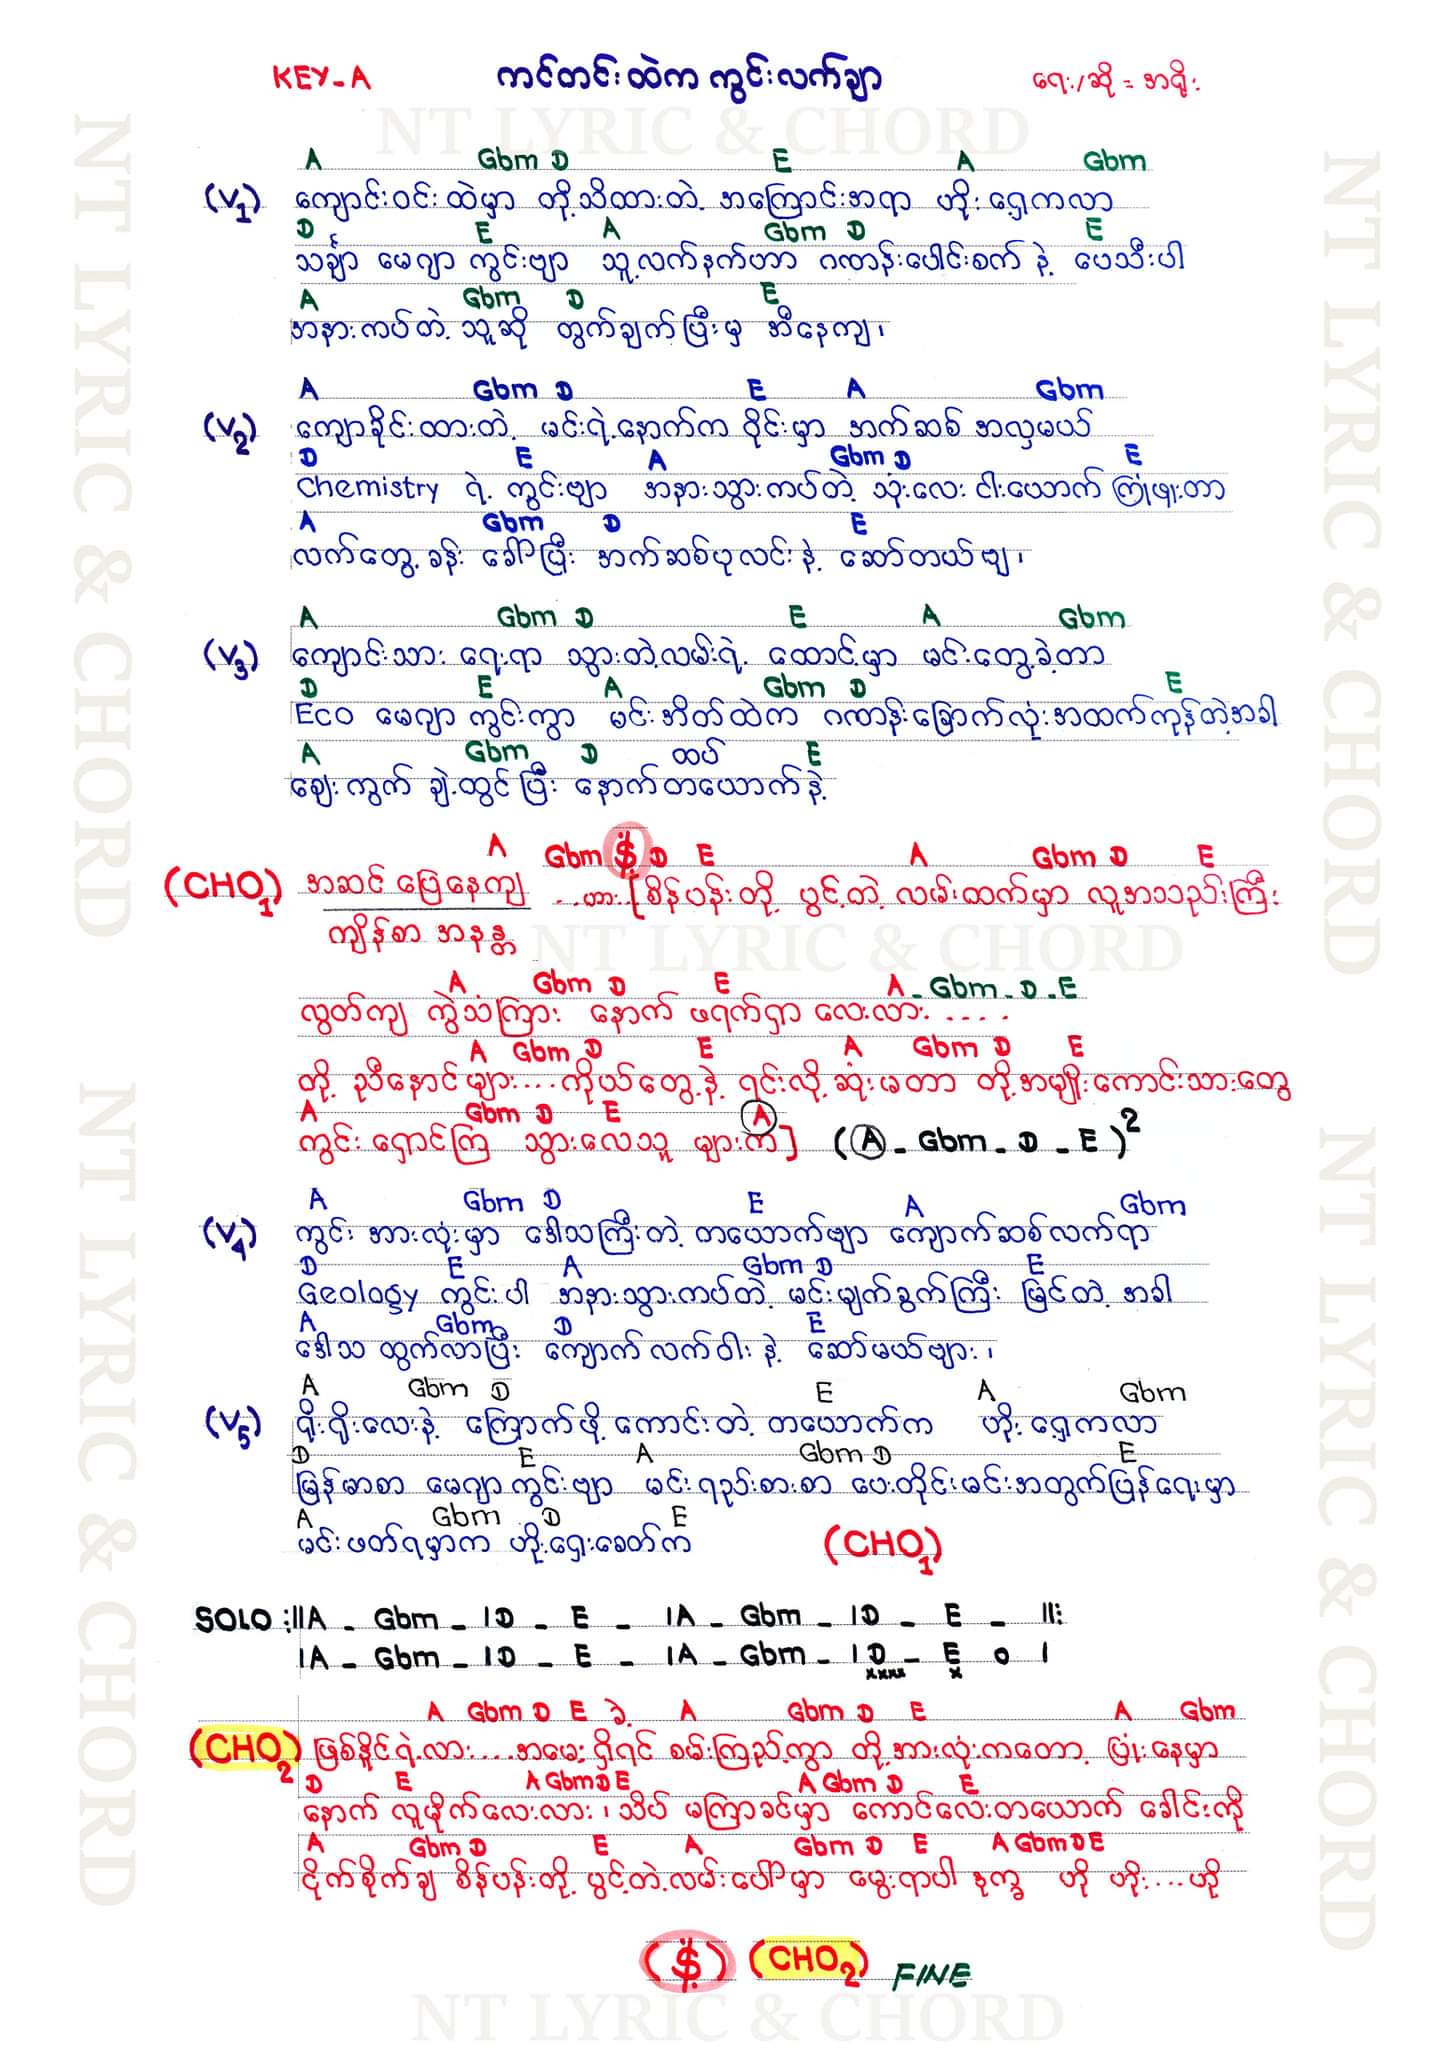 KEY-A ကင်တင်းထဲက ကွင်းလက်ချာ ရေး/ဆို = အရိုး
NT LYRIC & CHORD
A Gbm D E A Gbm
(V1) ကျောင်းဝင်းထဲမှာ တို့သိထားတဲ့ အကြောင်းအရာ ဟိုးရှေ့ကလာ
D E A Gbm D E
သင်္ချာ မေဂျာ ကွင်းဗျာ သူ့လက်နက်ဟာ ဂဏန်းပေါင်းစက်နဲ့ ပေသီးပါ
A Gbm D E
အနားကပ်တဲ့သူဆို တွက်ချက်ပြီးမှ အီနေကျ၊
A Gbm D E A Gbm
(V2) ကျောခိုင်းထားတဲ့ မင်းရဲ့နောက်က ဝိုင်းမှာ အက်ဆစ် အလှမယ်
D E A Gbm D E
Chemistry ရဲ့ ကွင်းဗျာ အနားသွားကပ်တဲ့ သုံးလေးငါးယောက် ကြုံဖူးတာ
A Gbm D E
လက်တွေ့ခန်း ခေါ်ပြီး အက်ဆစ်ပုလင်းနဲ့ ဆော်တယ်ဗျ၊
A Gbm D E A Gbm
(V3) ကျောင်းသားရေးရာ သွားတဲ့လမ်းရဲ့ ထောင့်မှာ မင်းတွေ့ခဲ့တာ
D E A Gbm D E
Eco မေဂျာ ကွင်းကွာ မင်းအိတ်ထဲက ဂဏန်းခြောက်လုံးအထက်ကုန်တဲ့အခါ
A Gbm D ထပ် E
ဈေးကွက် ချဲ့ထွင်ပြီး နောက်တယောက်နဲ့
A Gbm $ D E A Gbm D E
(CHO1) အဆင်ပြေနေကျ ..ဟား.. [စိန်ပန်းတို့ ပွင့်တဲ့ လမ်းထက်မှာ လူအသည်းကြီး
ကျိန်စာ အနန္တ
NT LYRIC & CHORD
A Gbm D E A - Gbm - D - E
လွတ်ကျ ကွဲသံကြား နောက် ဖရက်ရှာ လေးလား ....
A Gbm D E A Gbm D E
တို့ ညီနောင်များ....ကိုယ်တွေ့နဲ့ ရင်းလို့ဆုံးမတာ တို့အမျိုးကောင်းသားတွေ
A Gbm D E A
ကွင်းရှောင်ကြ သွားလေသူ များက] (A - Gbm - D - E)2
A Gbm D E A Gbm
(V4) ကွင်း အားလုံးမှာ ဒေါသကြီးတဲ့ တယောက်ဗျာ ကျောက်ဆစ်လက်ရာ
D E A Gbm D E
Geology ကွင်းပါ အနားသွားကပ်တဲ့ မင်းမျက်ခွက်ကြီး မြင်တဲ့ အခါ
A Gbm D E
ဒေါသ ထွက်လာပြီး ကျောက်လက်ဝါးနဲ့ ဆော်မယ်ဗျား၊
A Gbm D E A Gbm
(V5) ရိုးရိုးလေးနဲ့ ကြောက်ဖို့ကောင်းတဲ့ တယောက်က ဟိုးရှေ့ကလာ
D E A Gbm D E
မြန်မာစာ မေဂျာကွင်းဗျာ မင်းရည်းစားစာ ပေးတိုင်းမင်းအတွက်ပြန်ရေးမှာ
A Gbm D E
မင်းဖတ်ရမှာက ဟိုးရှေးခေတ်က (CHO1)
SOLO :||A - Gbm - |D - E - |A - Gbm - |D - E - ||:
|A - Gbm - |D - E - |A - Gbm - |D - E o |
xxxx x
A Gbm D E ခဲ့ A Gbm D E A Gbm
(CHO2) ဖြစ်နိုင်ရဲ့လား....အမေးရှိရင် စမ်းကြည့်ကွာ တို့အားလုံးကတော့ ပြုံးနေမှာ
D E A Gbm D E A Gbm D E
နောက် လူမိုက်လေးလား၊ သိပ် မကြာခင်မှာ ကောင်လေးတယောက် ခေါင်းကို
A Gbm D E A Gbm D E A Gbm D E
ငိုက်စိုက်ချ စိန်ပန်းတို့ ပွင့်တဲ့လမ်းပေါ်မှာ မွေးရာပါ ဒုက္ခ ဟို ဟိုး....ဟို
($) (CHO2) FINE
NT LYRIC & CHORD
NT LYRIC & CHORD
NT LYRIC & CHORD
NT LYRIC & CHORD
NT LYRIC & CHORD